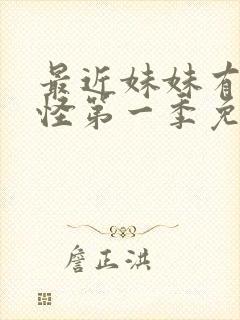 最近妹妹有
怪第一季免
詹正洪